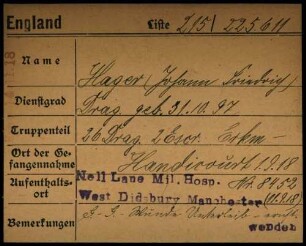 England Liste Z 15/ 225.611
Name Hager, Johann Friedrich
Dienstgrad Drag. geb. 31.10.97
Truppenteil 26 Drag. 2 Escr.
Ort der Ge-
fangennahme 1918
Aufenthalts-
ort Nell Lane Mil. Hosp. Nr. 8452
West Didsbury Manchester
Bemerkungen Wunde Unterleib
wenden